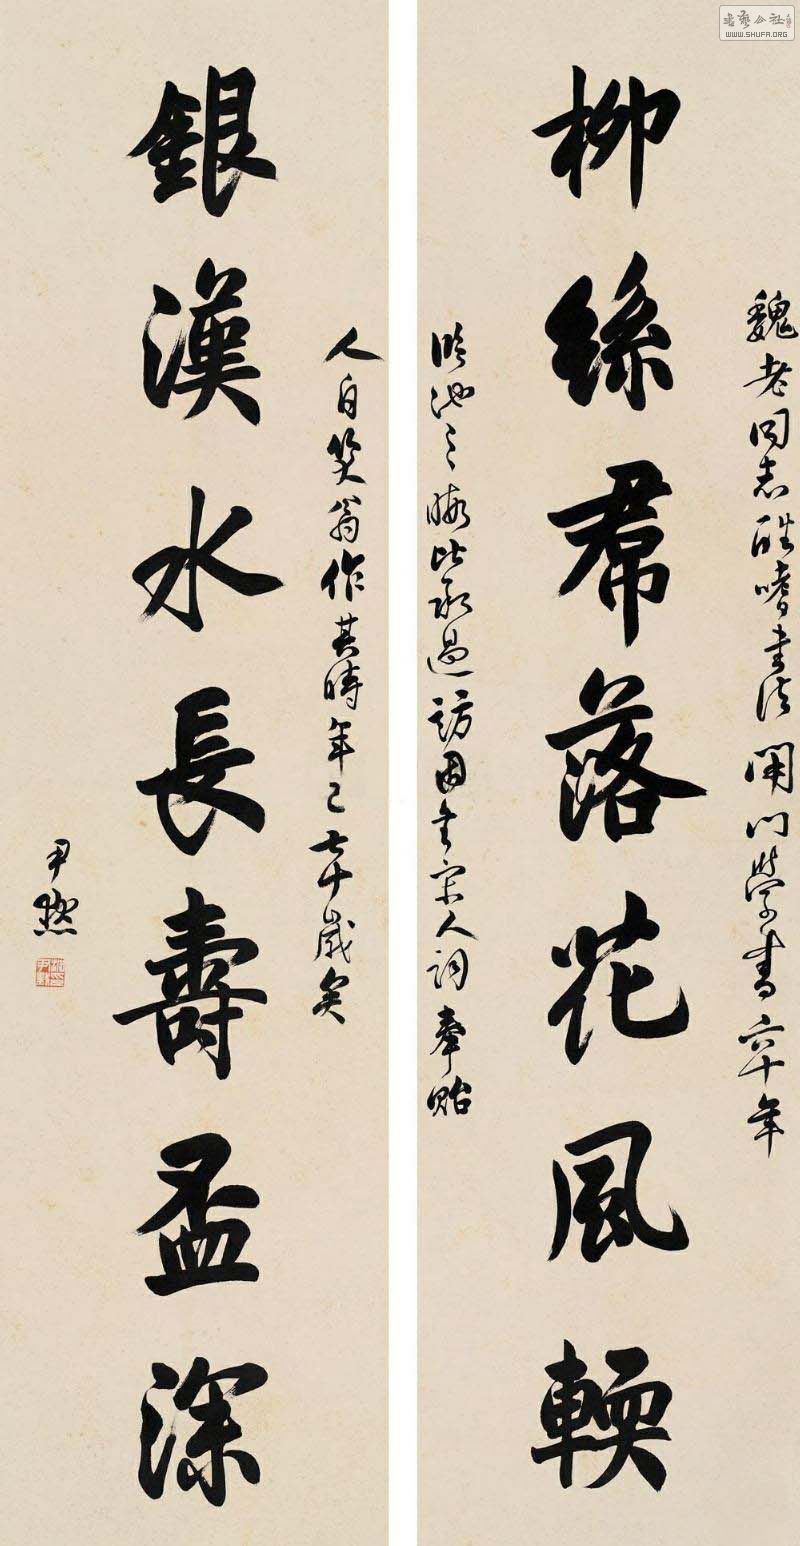 書藝公社
WWW.SHUFA.ORG
魏老同志酷嗜書法閉門學書六十年
柳絲帬落花風輭
臨池之暇比承過訪因書宋人詞奉貽
人自笑翁作其時年已七十歲矣
銀漢水長壽盃深
尹默